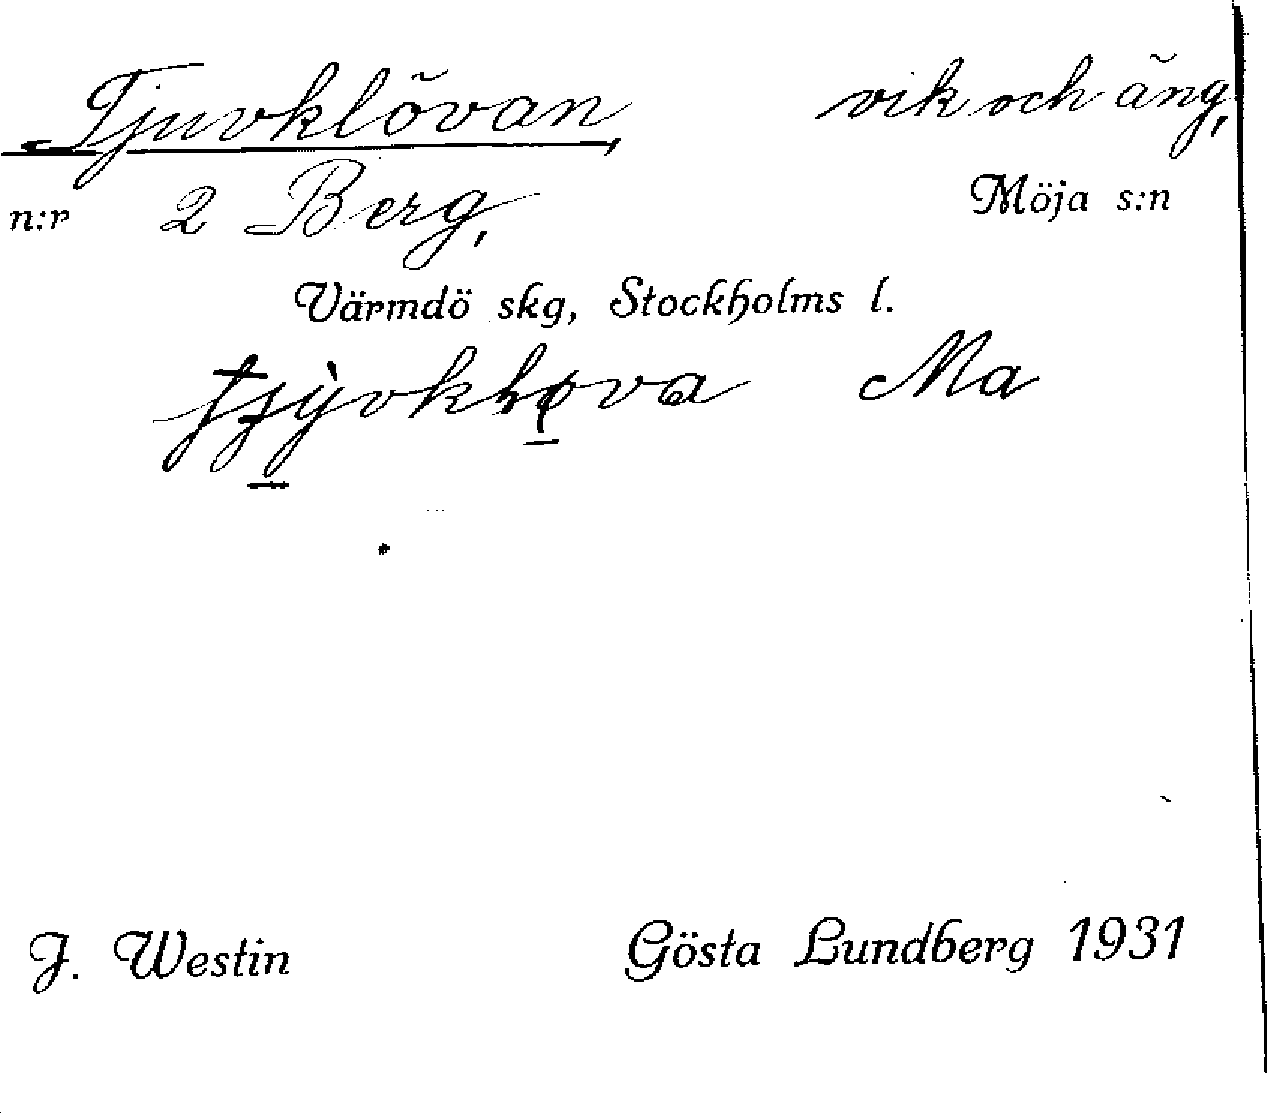 Tjuvklövan, vik och äng,
n:r 2 Berg, Möja s:n
Värmdö skg, Stockholms l.
Ma
J. Westin Gösta Lundberg 1931